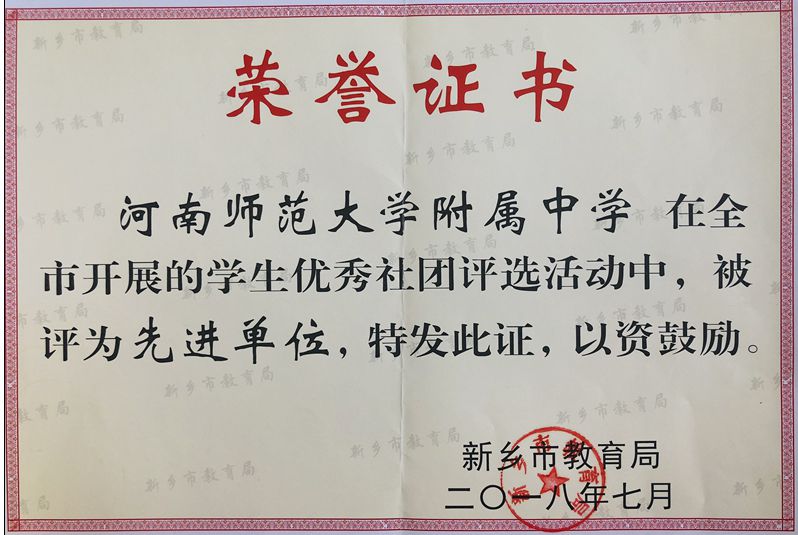 荣誉证书
河南师范大学附属中学 在全
市开展的学生优秀社团评选活动中，被
评为先进单位，特发此证，以资鼓励。
新乡市教育局
二〇一八年七月
新乡市教育局